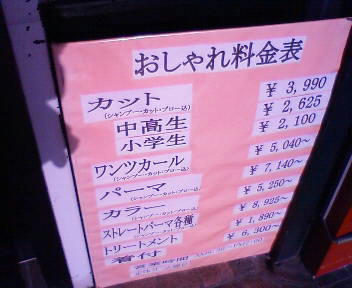 おしゃれ料金表
カット ¥ 3,990
(シャンプー・カット・ブロー込)
中高生 ¥ 2,625
小学生 ¥ 2,100
ワンツカール ¥ 5,040~
(シャンプー・カット・ブロー込)
パーマ ¥ 7,140~
(シャンプー・カット・ブロー込)
カラー ¥ 5,250~
(シャンプー・カット・ブロー込)
ストレートパーマ各種 ¥ 8,925~
トリートメント ¥ 1,890~
着付 ¥ 6,300~
営業時間